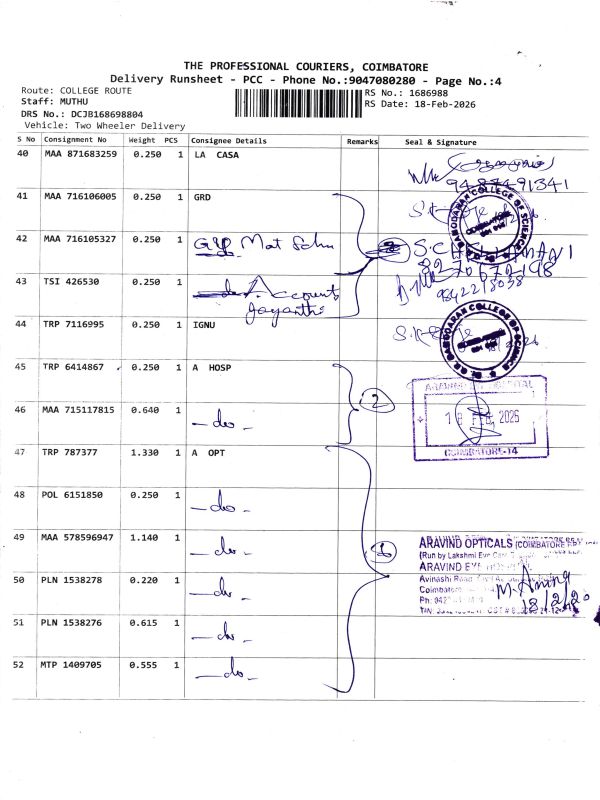 THE PROFESSIONAL COURIERS, COIMBATORE
Delivery Runsheet - PCC - Phone No.:9047080280 - Page No.:4
Route: COLLEGE ROUTE
Staff: MUTHU
DRS No.: DCJB168698804
Vehicle: Two Wheeler Delivery
RS No.: 1686988
RS Date: 18-Feb-2026
S No Consignment No Weight PCS Consignee Details Remarks Seal & Signature
40 MAA 871683259 0.250 1 LA CASA
9487491341
41 MAA 716106005 0.250 1 GRD
42 MAA 716105327 0.250 1
8270672198
43 TSI 426530 0.250 1 Accounts
Jayanthi
9842218038
44 TRP 7116995 0.250 1 IGNU
45 TRP 6414867 0.250 1 A HOSP
46 MAA 715117815 0.640 1 -do-
2
18 FEB 2026
COIMBATORE-14
47 TRP 787377 1.330 1 A OPT
48 POL 6151850 0.250 1 -do-
49 MAA 578596947 1.140 1 -do-
6
ARAVIND OPTICALS (COIMBATORE
(Run by Lakshmi Eye Care
ARAVIND EYE
Avinashi Road
50 PLN 1538278 0.220 1 -do-
51 PLN 1538276 0.615 1 -do-
52 MTP 1409705 0.555 1 -do-